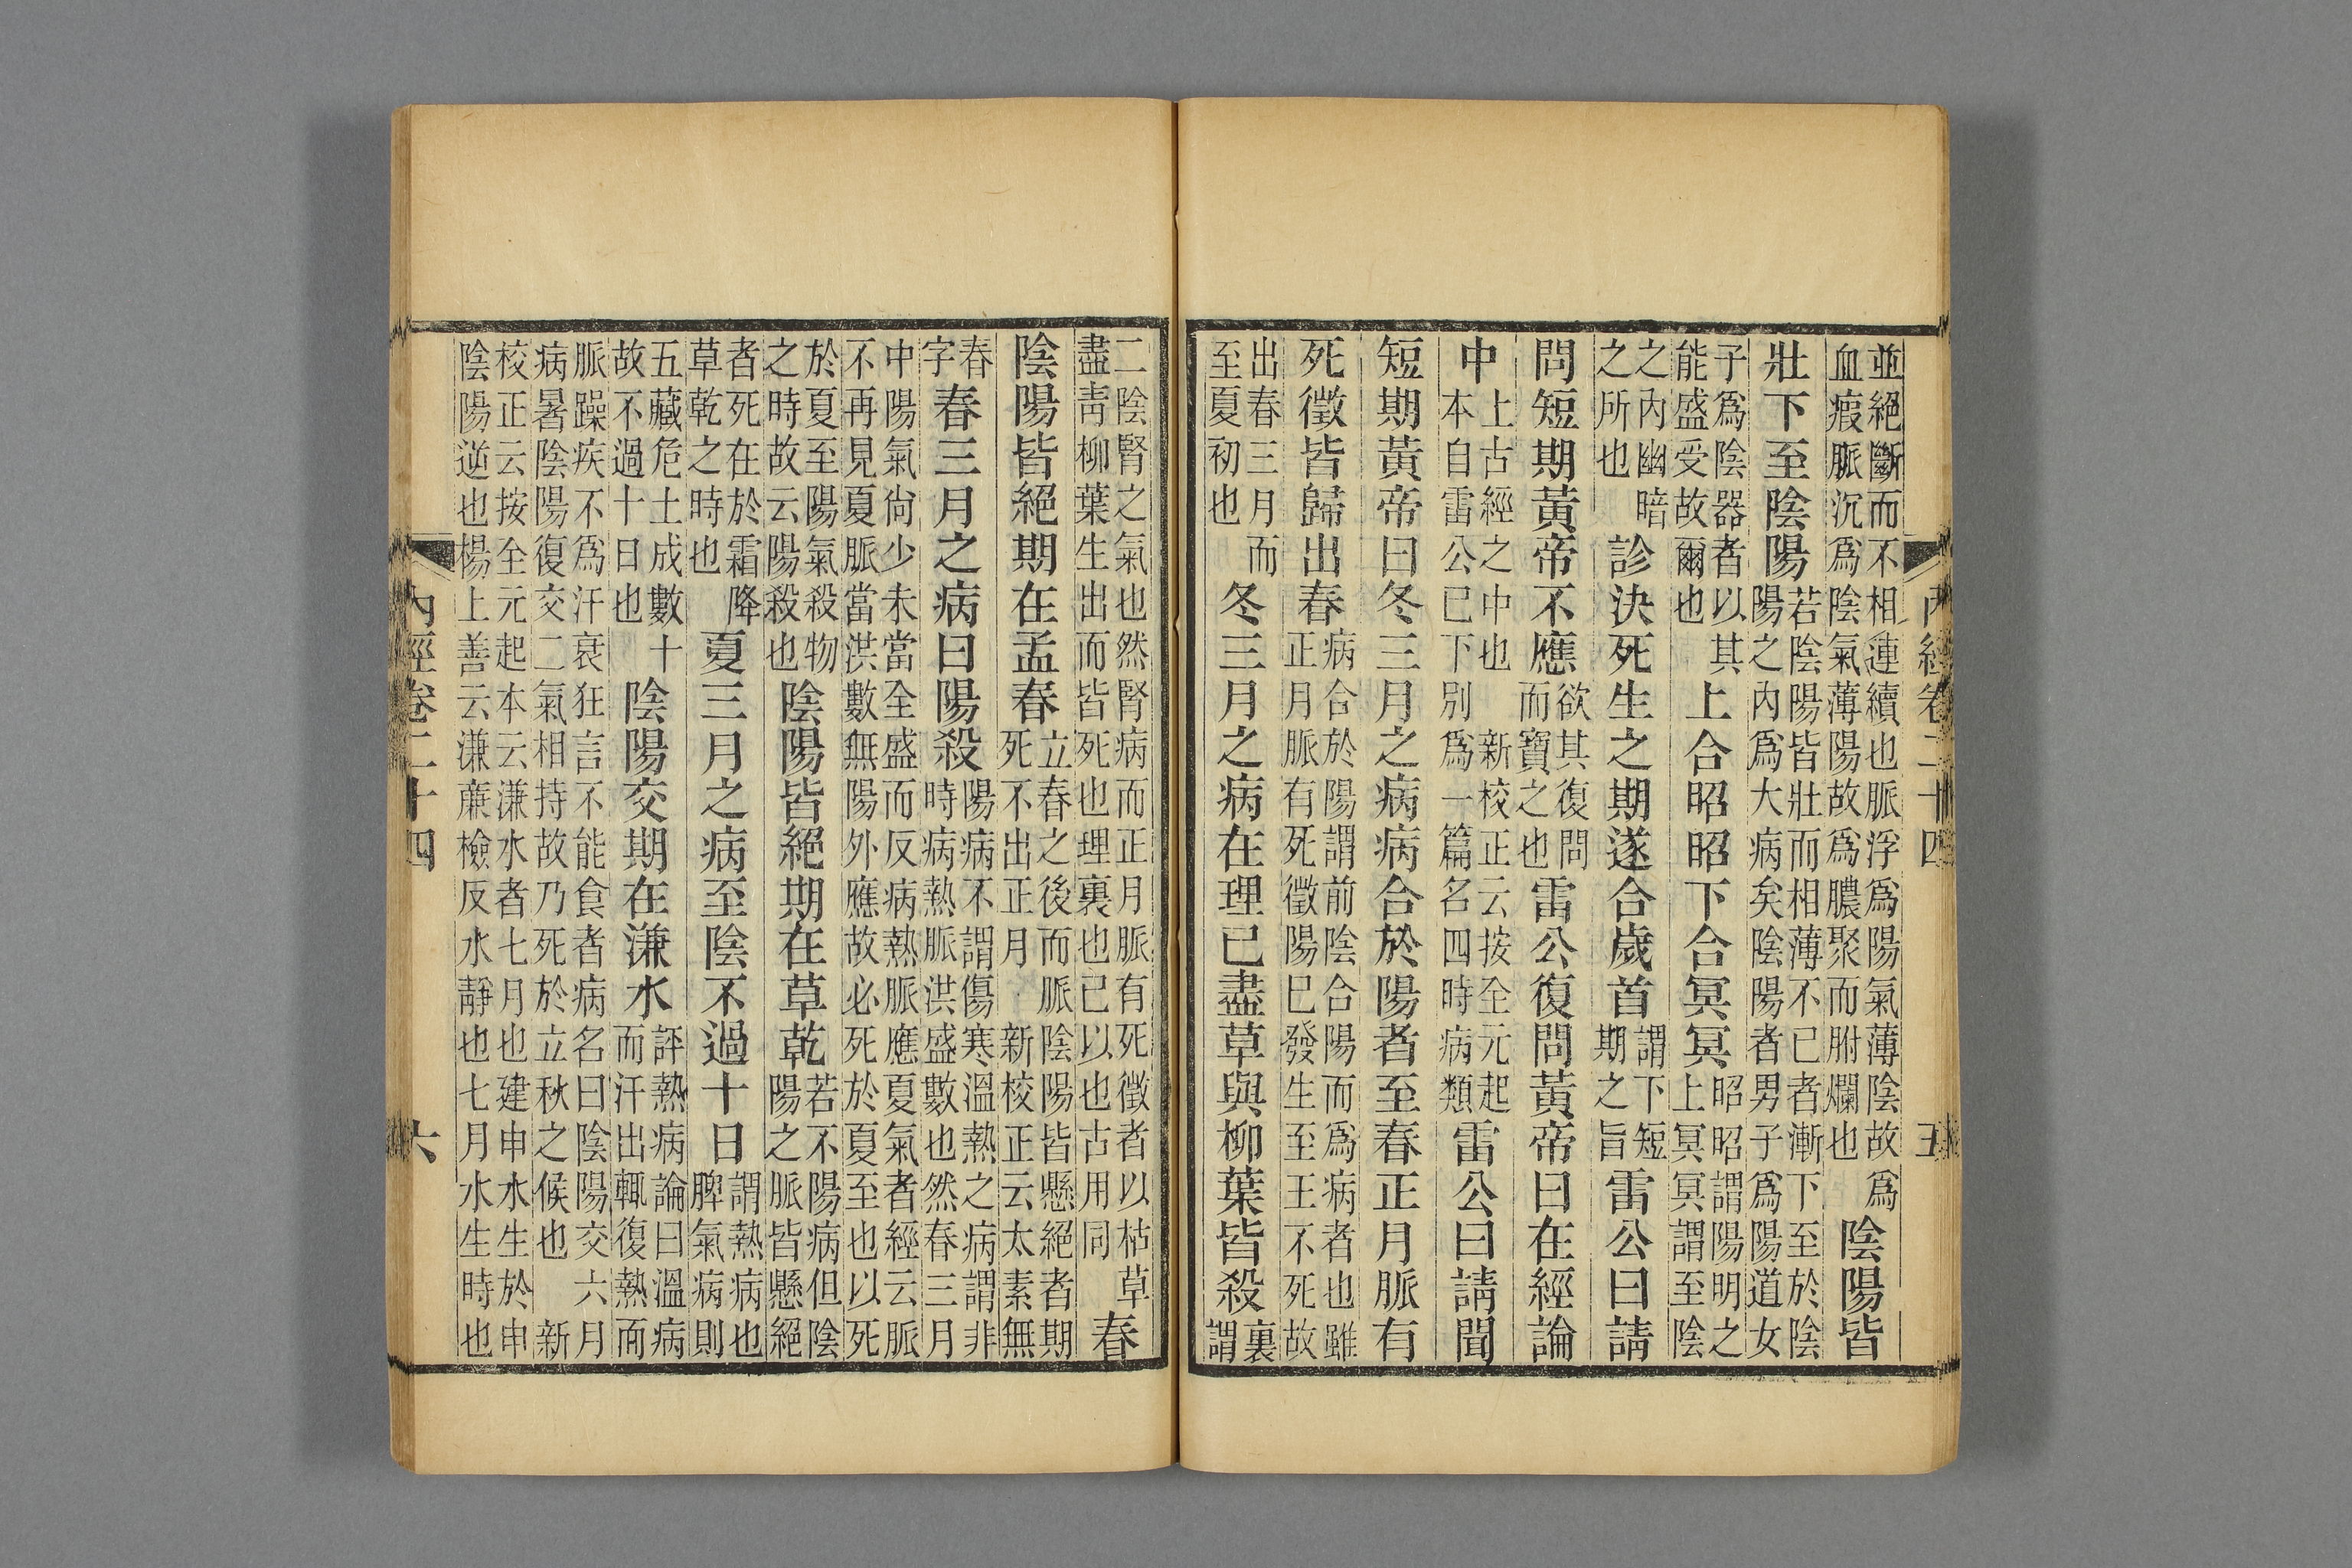 內經卷二十四 五
並絕斷而不相連續也脈浮爲陽氣薄陰故爲
血瘕脈沉爲陰氣薄陽故爲膿聚而胕爛也
陰陽皆
壯下至陰陽
若陰陽皆壯而相薄不已者漸下至於陰
陽之內爲大病矣陰陽者男子爲陽道女
子爲陰器者以其
能盛受故爾也
上合昭昭下合冥冥
昭昭謂陽明之
上冥冥謂至陰
之內幽暗
之所也
診決死生之期遂合歲首
謂下短
期之旨
雷公曰請
問短期黃帝不應
欲其復問
而寶之也
雷公復問黃帝曰在經論
中
上古經之中也
本自雷公已下別爲一篇名四時病類
新校正云按全元起
雷公曰請聞
短期黃帝曰冬三月之病病合於陽者至春正月脈有
死徵皆歸出春
病合於陽謂前陰合陽而爲病者也雖
正月脈有死徵陽已發生至王不死故
出春三月而
至夏初也
冬三月之病在理已盡草與柳葉皆殺
裏
謂
二陰腎之氣也然腎病而正月脈有死徵者以枯草
盡靑柳葉生出而皆死也理裏也已以也古用同
春
陰陽皆絕期在孟春
立春之後而脈陰陽皆懸絕者期
死不出正月
新校正云太素無
春
字
春三月之病曰陽殺
陽病不謂傷寒溫熱之病謂非
時病熱脈洪盛數也然春三月
中陽氣尙少未當全盛而反病熱脈應夏氣者經云脈
不再見夏脈當洪數無陽外應故必死於夏至也以死
於夏至陽氣殺物
之時故云陽殺也
陰陽皆絕期在草乾
若不陽病但陰
陽之脈皆懸絕
者死在於霜降
草乾之時也
夏三月之病至陰不過十日
謂熱病也
脾氣病則
五藏危土成數十
故不過十日也
陰陽交期在溓水
評熱病論曰溫病
而汗出輒復熱而
脈躁疾不爲汗衰狂言不能食者病名曰陰陽交六月
病暑陰陽復交二氣相持故乃死於立秋之候也
新
校正云按全元起本云溓水者七月也建申水生於申
陰陽逆也楊上善云溓廉檢反水靜也七月水生時也
內經卷二十四 六